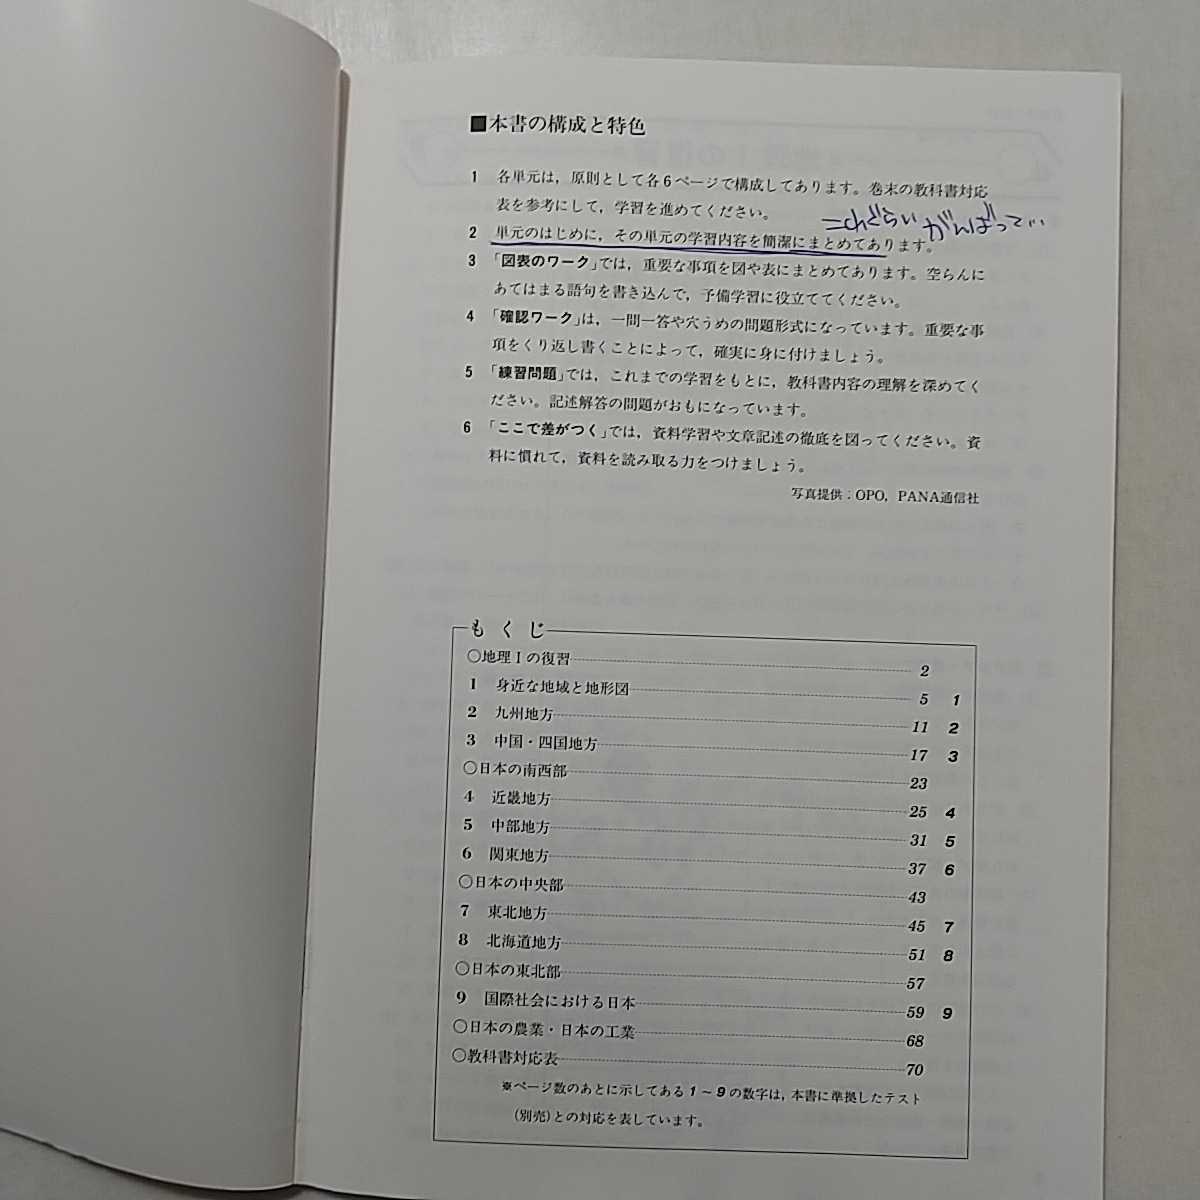 ■本書の構成と特色
1 各単元は，原則として各6ページで構成してあります。巻末の教科書対応
表を参考にして，学習を進めてください。
これぐらいがんばって…
2 単元のはじめに，その単元の学習内容を簡潔にまとめてあります。
3 「図表のワーク」では，重要な事項を図や表にまとめてあります。空らんに
あてはまる語句を書き込んで，予備学習に役立ててください。
4 「確認ワーク」は，一問一答や穴うめの問題形式になっています。重要な事
項をくり返し書くことによって，確実に身に付けましょう。
5 「練習問題」では，これまでの学習をもとに，教科書内容の理解を深めてく
ださい。記述解答の問題がおもになっています。
6 「ここで差がつく」では，資料学習や文章記述の徹底を図ってください。資
料に慣れて，資料を読み取る力をつけましょう。
写真提供：OPO，PANA通信社
もくじ
○地理Ⅰの復習 2
1 身近な地域と地形図 5 1
2 九州地方 11 2
3 中国・四国地方 17 3
○日本の南西部 23
4 近畿地方 25 4
5 中部地方 31 5
6 関東地方 37 6
○日本の中央部 43
7 東北地方 45 7
8 北海道地方 51 8
○日本の東北部 57
9 国際社会における日本 59 9
○日本の農業・日本の工業 68
○教科書対応表 70
※ページ数のあとに示してある1～9の数字は，本書に準拠したテスト
(別売)との対応を表しています。